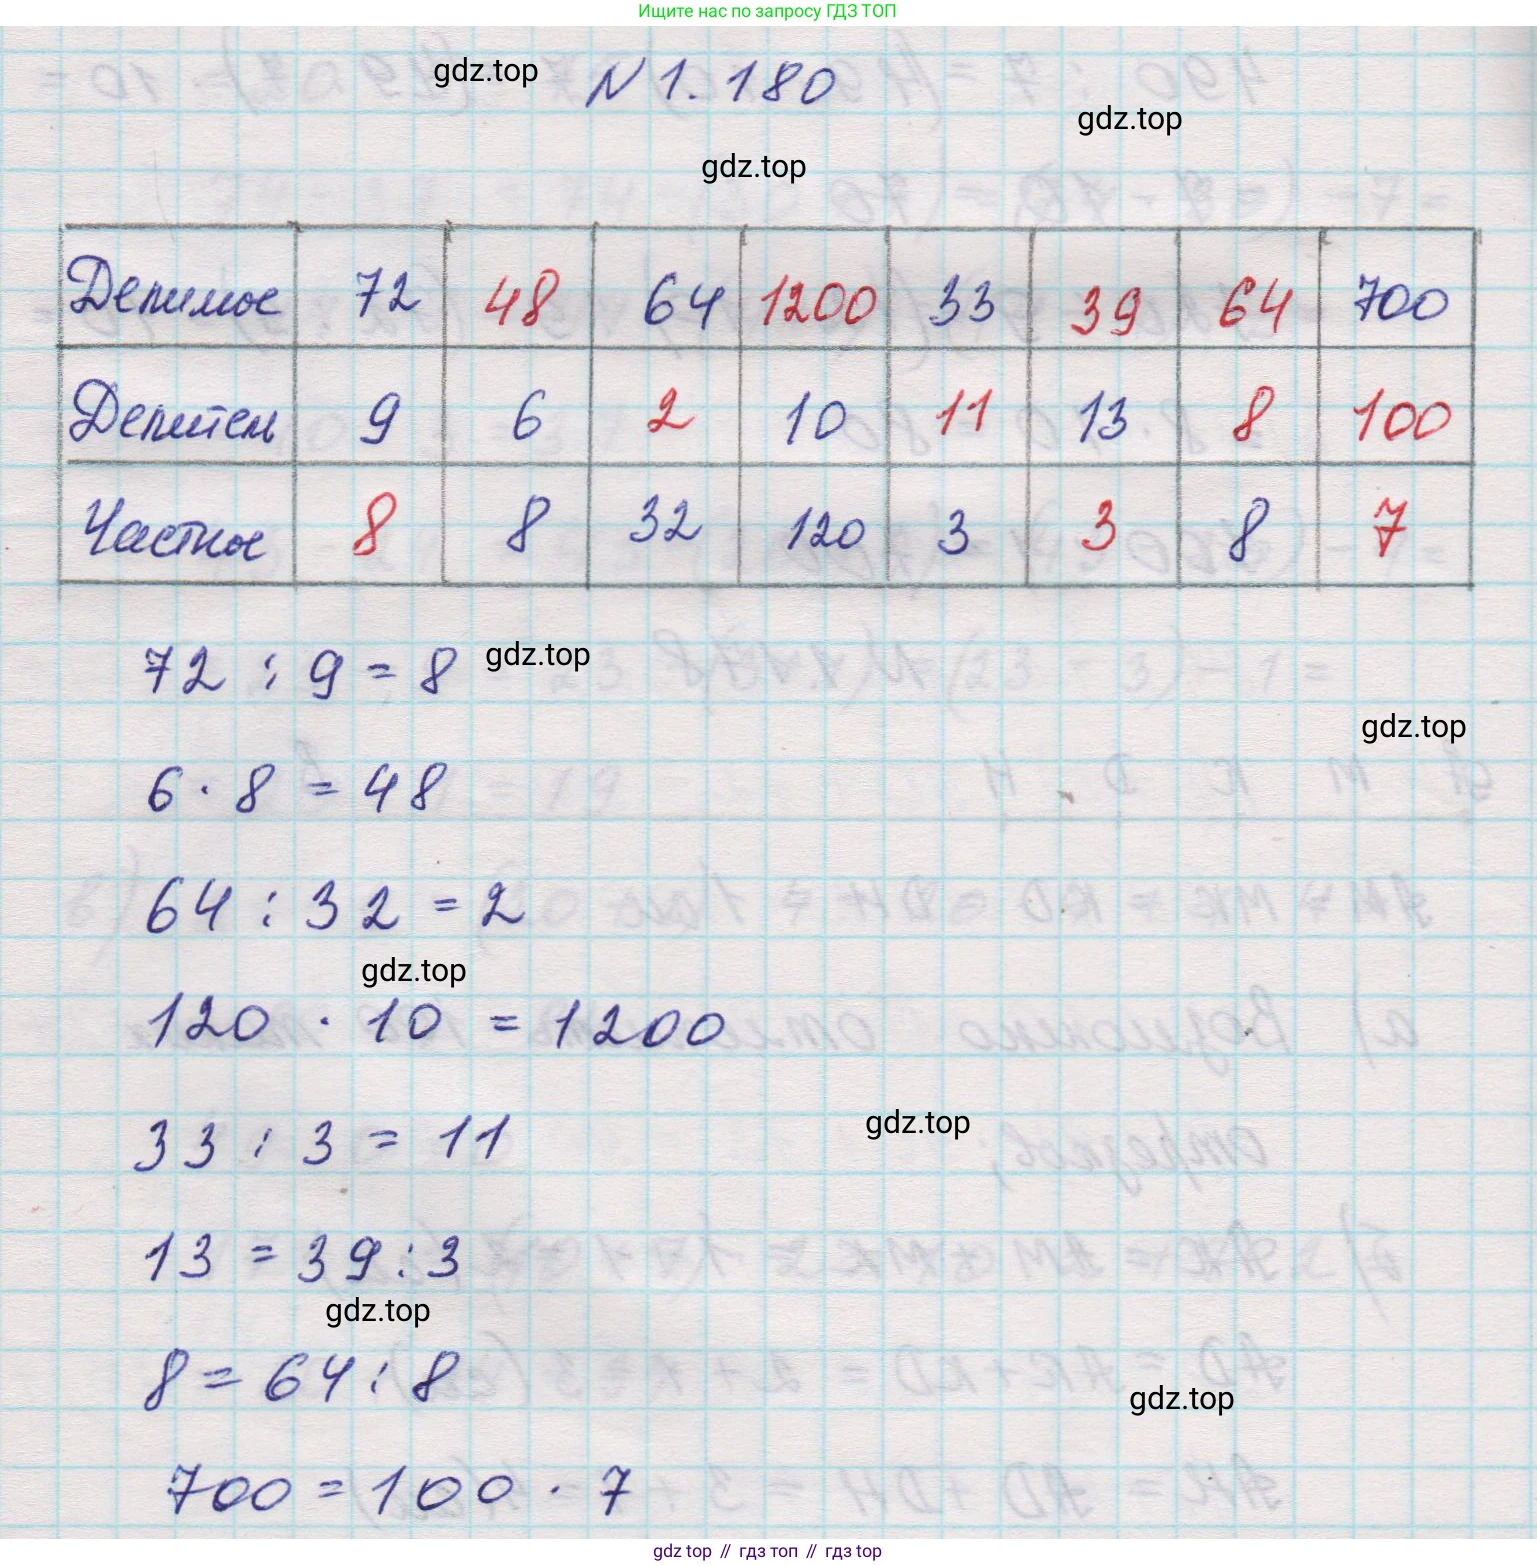 Ищите нас по запросу ГДЗ ТОП
gdz.top
N 1.180
gdz.top
gdz.top
Делимое 72 48 64 1200 33 39 64 700
Делител 9 6 2 10 11 13 8 100
Частное 8 8 32 120 3 3 8 7
72 : 9 = 8
gdz.top
gdz.top
6 · 8 = 48
64 : 32 = 2
gdz.top
120 · 10 = 1200
33 : 3 = 11
gdz.top
13 = 39 : 3
gdz.top
8 = 64 : 8
gdz.top
700 = 100 · 7
gdz top // гдз топ // гдз top